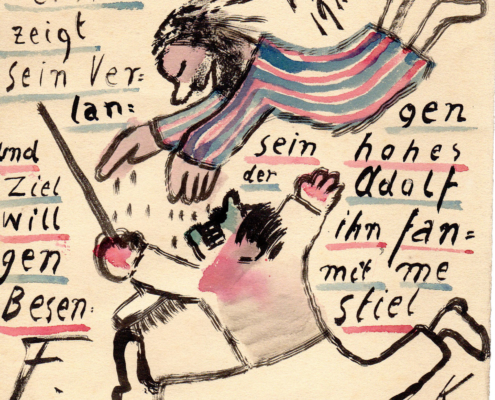 zeigt
sein Ver=
lan= gen
und sein hohes
Ziel der Adolf
will ihn fan=
gen mit me
Besen= stiel
F. K